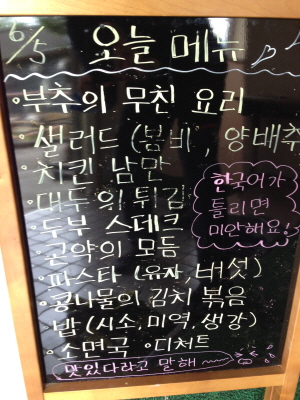 6/5 오늘 메뉴
·부추의 무친 요리
·샐러드 (봄비, 양배추
·치킨 남만
·대두의 튀김
·두부 스데크
·곤약의 모듬
·파스타 (유자, 버섯)
·콩나물의 김치 볶음
·밥 (시소, 미역, 생강)
·소면국 ·디처트
한국어가
틀리면
미안해요!
맛있다라고 말해